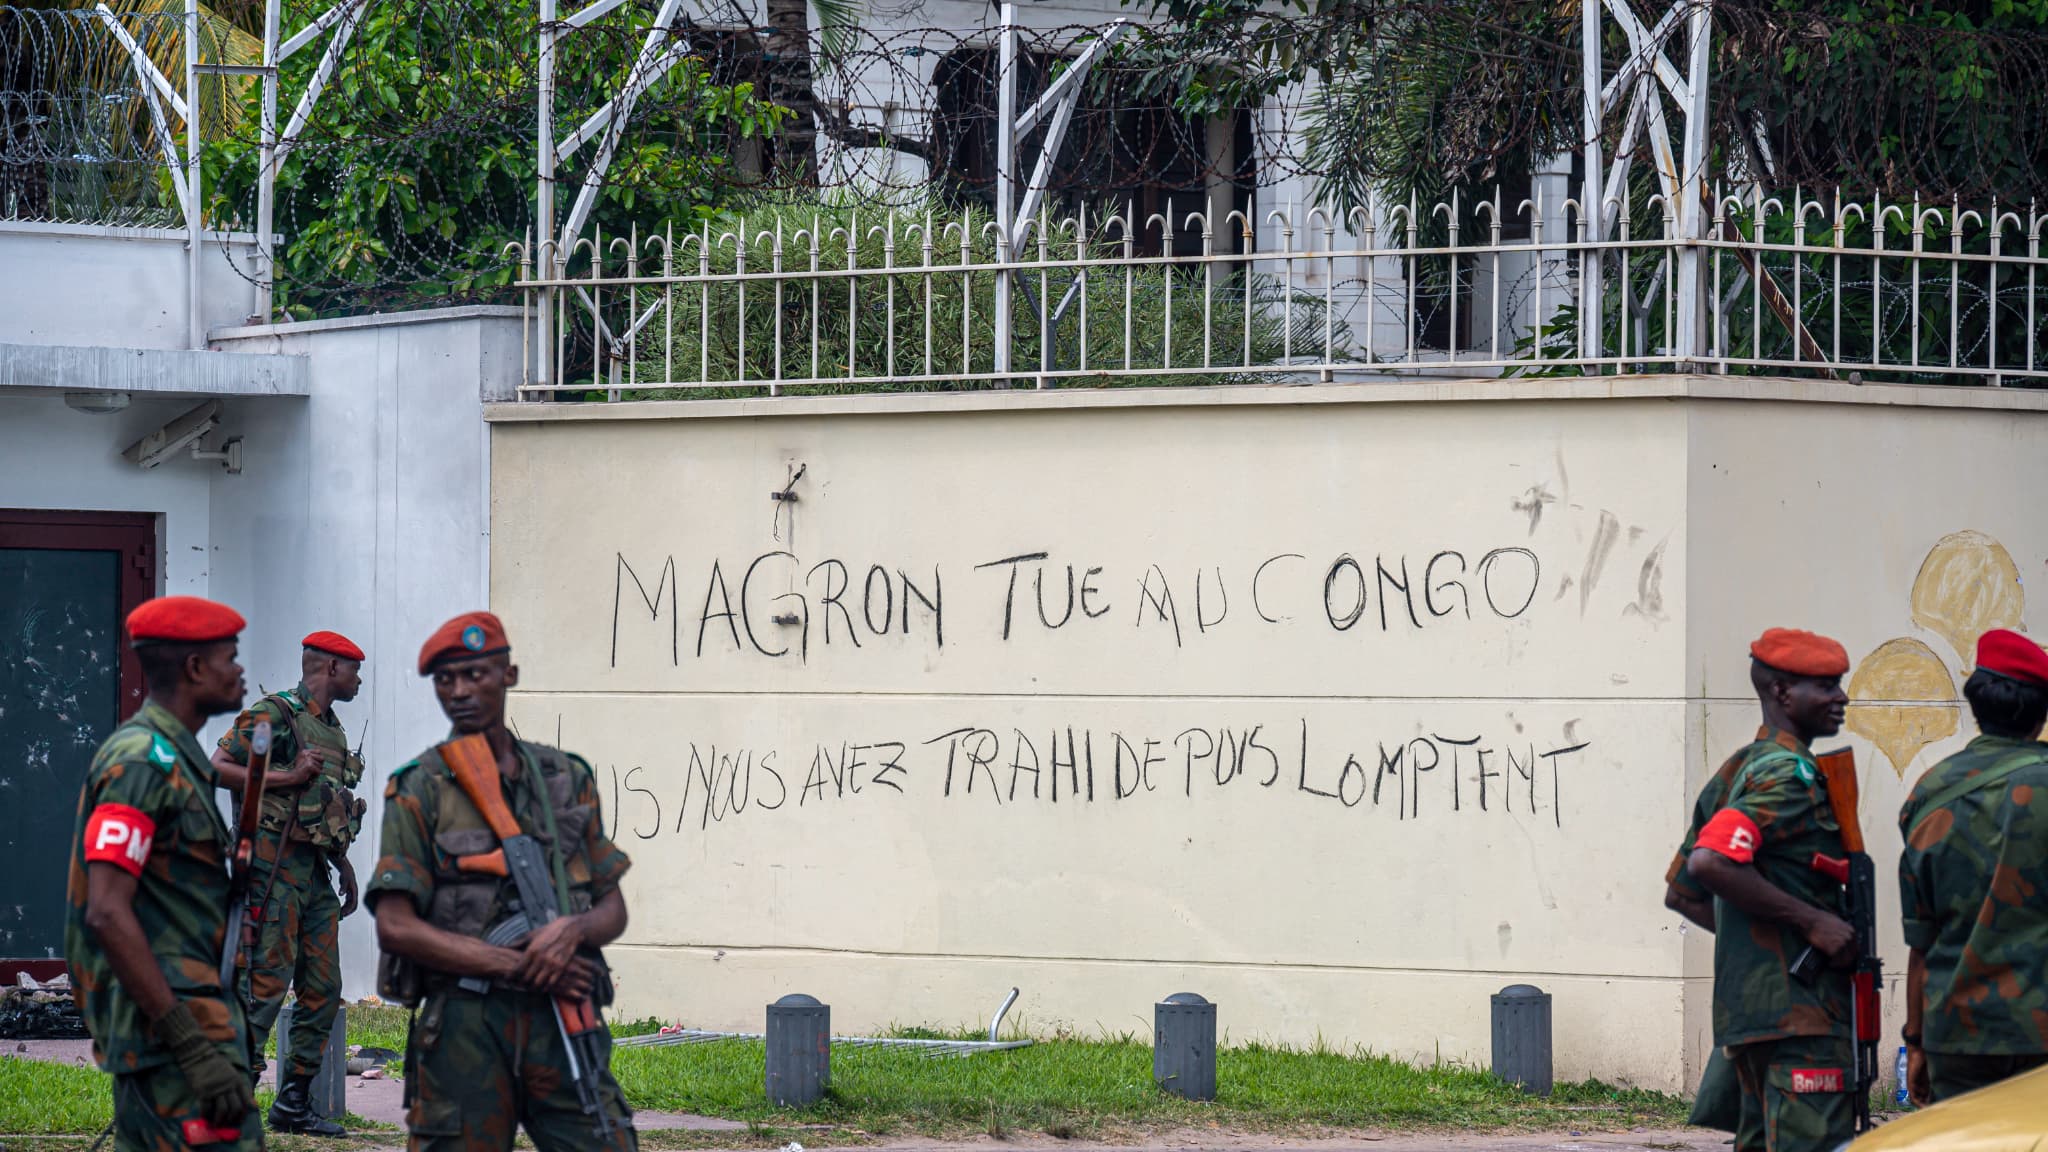 MAGRON TUE AU CONGO
VOUS NOUS AVEZ TRAHI DEPUIS LOMPTEMT
PM
P
BnPM